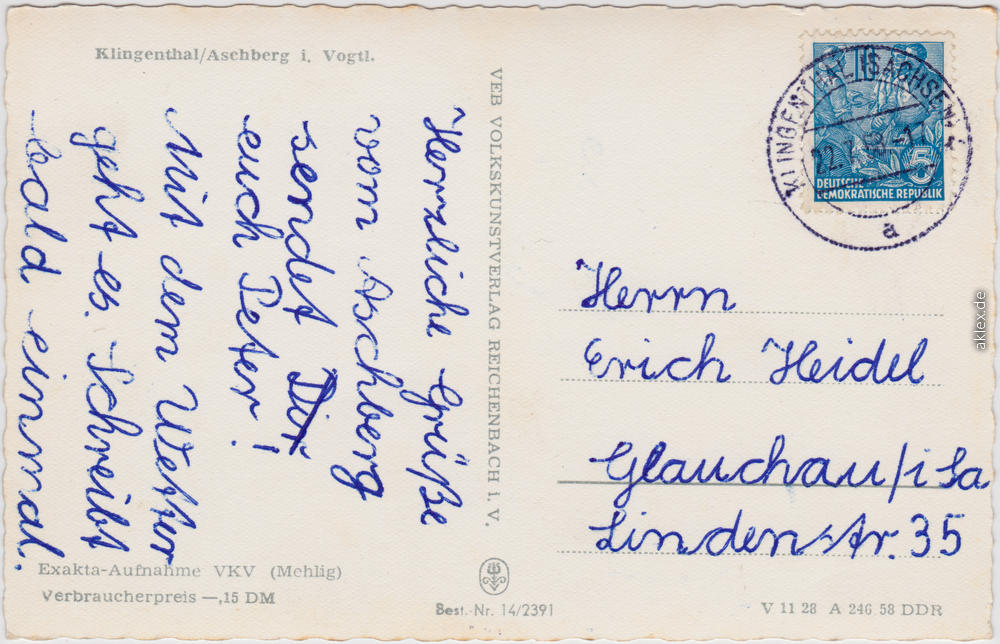 Klingenthal/Aschberg i. Vogtl.
Herzliche Grüße
vom Aschberg
sendet Dir
euch Peter!
Mit dem Wetter
geht es. Schreibt
bald einmal.
Exakta-Aufnahme VKV (Mehlig)
Verbraucherpreis —,15 DM
VEB VOLKSKUNSTVERLAG REICHENBACH i. V.
Best.-Nr. 14/2391
KLINGENTHAL (SACHSEN) 1
a
10
5
DEUTSCHE
DEMOKRATISCHE REPUBLIK
Herrn
Erich Heidel
Glauchau/i Sa
Linden-Str. 35
V 11 28 A 246 58 DDR
aklex.de